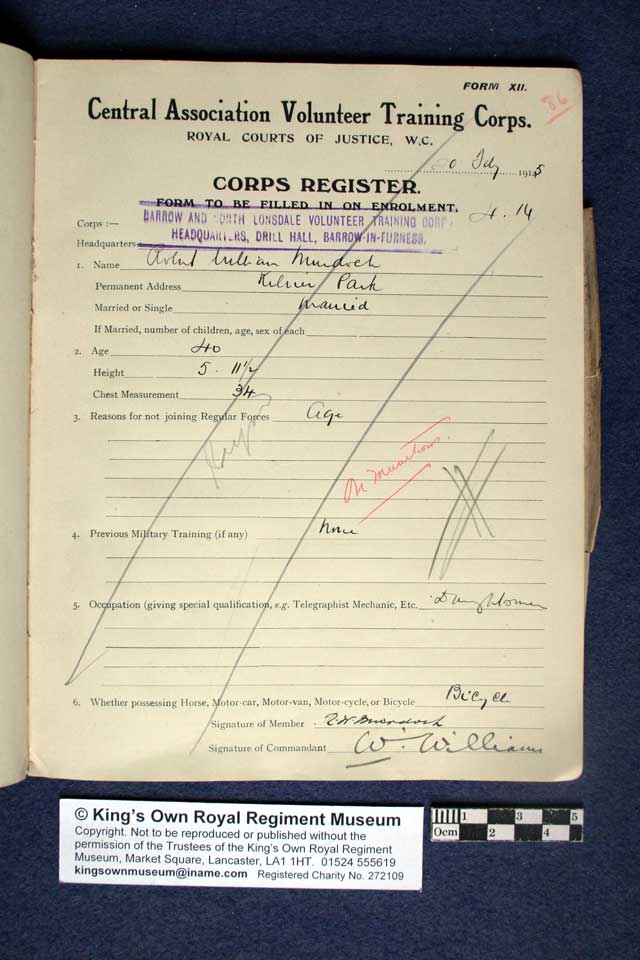 FORM XII.
86
Central Association Volunteer Training Corps.
ROYAL COURTS OF JUSTICE, W.C.
20 July 1915
CORPS REGISTER.
FORM TO BE FILLED IN ON ENROLMENT.
4. 14
Corps :—
BARROW AND NORTH LONSDALE VOLUNTEER TRAINING CORPS
Headquarters
HEADQUARTERS, DRILL HALL, BARROW-IN-FURNESS.
1. Name Robert William Murdoch
Permanent Address Park
Married or Single Married
If Married, number of children, age, sex of each
2. Age 40
Height 5. 11½
Chest Measurement 34
3. Reasons for not joining Regular Forces Age
On Munitions.
4. Previous Military Training (if any) None
5. Occupation (giving special qualification, e.g. Telegraphist Mechanic, Etc. Draughtsman
6. Whether possessing Horse, Motor-car, Motor-van, Motor-cycle, or Bicycle Bicycle
Signature of Member R W Murdoch
Signature of Commandant W. Williams
© King's Own Royal Regiment Museum
Copyright. Not to be reproduced or published without the
permission of the Trustees of the King's Own Royal Regiment
Museum, Market Square, Lancaster, LA1 1HT. 01524 555619
kingsownmuseum@iname.com Registered Charity No. 272109
1 3 5
0cm 2 4